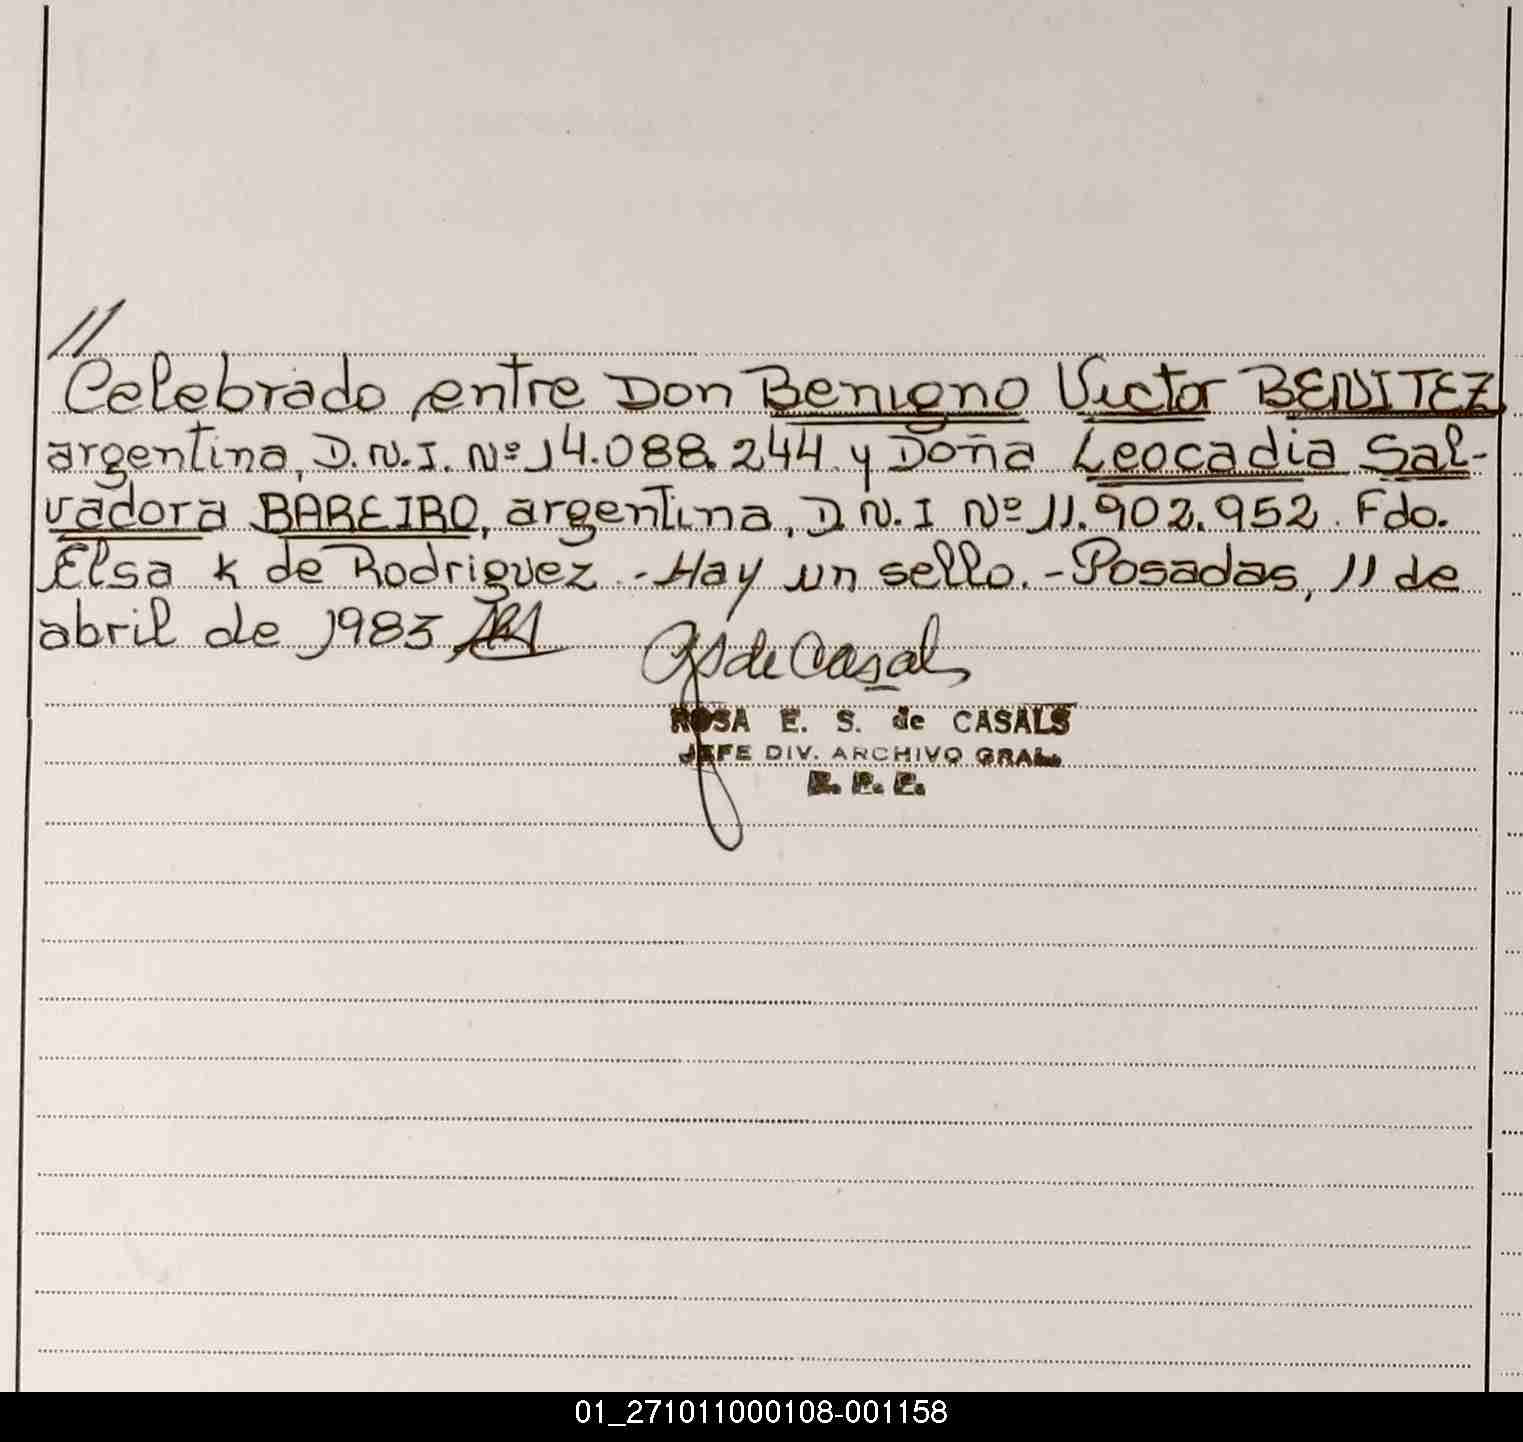 //
Celebrado entre Don Benigno Victor BENITEZ,
argentina, D.N.I. Nº 14.088.244 y Doña Leocadia Sal-
vadora BAREIRO, argentina, D.N.I Nº 11.902.952. Fdo.
Elsa K de Rodriguez.- Hay un sello.- Posadas, 11 de
abril de 1983
de Casals
ROSA E. S. de CASALS
JEFE DIV. ARCHIVO GRAL.
01_271011000108-001158